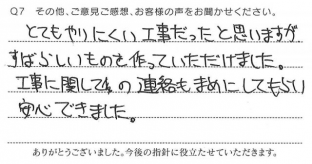 Q7 その他、ご意見ご感想、お客様の声をお聞かせください。
とてもやりにくい工事だったと思いますが
すばらしいものを作っていただけました。
工事に関しての連絡もまめにしてもらい
安心できました。
ありがとうございました。今後の指針に役立たせていただきます。